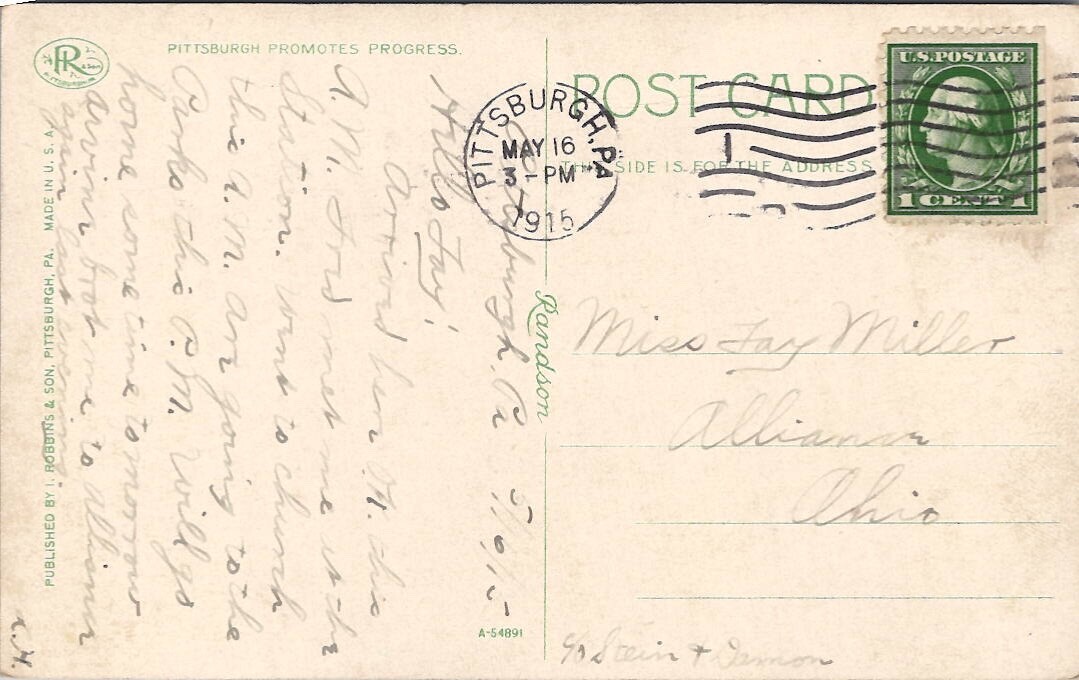 PITTSBURGH PROMOTES PROGRESS.
POST CARD
THIS SIDE IS FOR THE ADDRESS
U.S. POSTAGE
1 CENT 1
PITTSBURGH, PA
MAY 16
3-PM
1915
1
R
PITTSBURGH, PA.
PUBLISHED BY I. ROBBINS & SON, PITTSBURGH, PA. MADE IN U. S. A.
Randson
A-54891
Pittsburgh. Pa 5/16/15
Hello Fay!
Arrived here at this
A. M. Ford met me at the
Station. Went to church
this A.M. are going to the
Parks this P.M. Will go
home some time tomorrow
brot me to Alliance
again last evening.
Miss Fay Miller
Alliance
Ohio
c/o Stein +